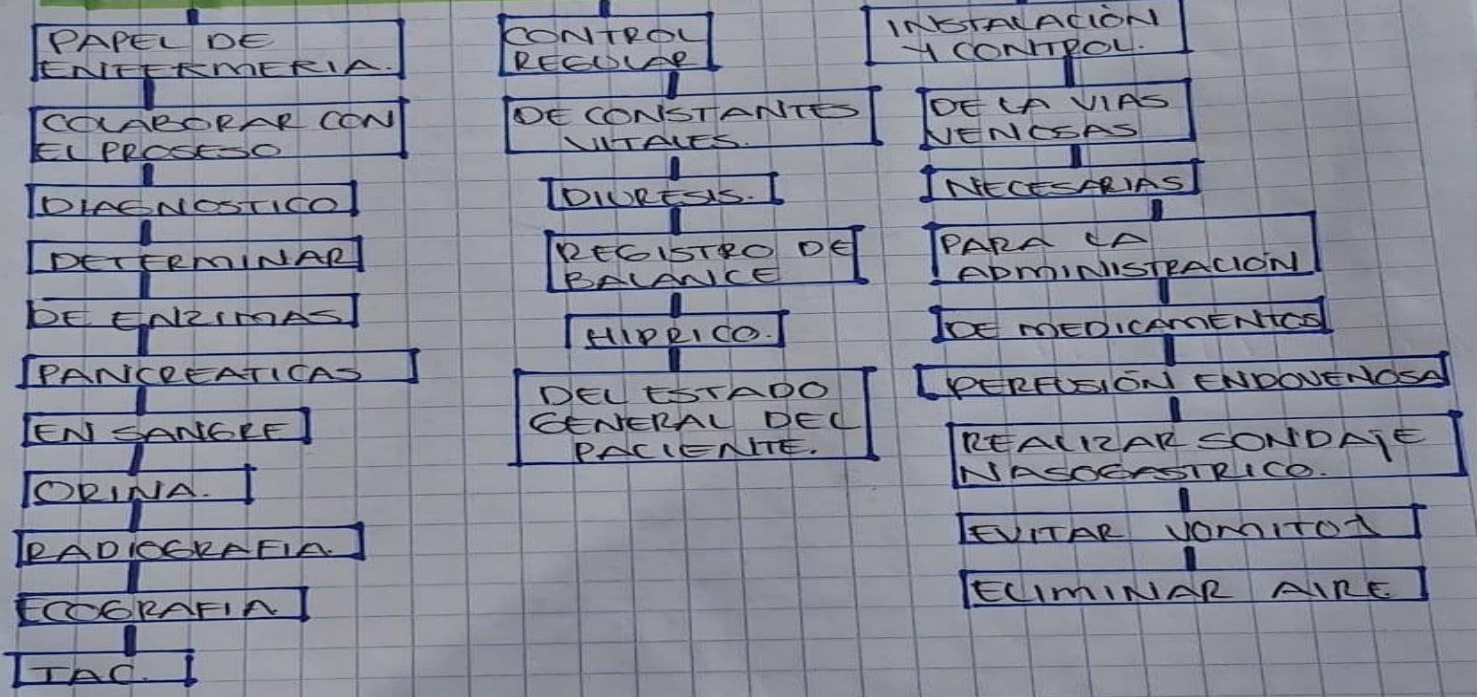 PAPEL DE
ENFERMERIA.
COLABORAR CON
EL PROSESO
DIAGNOSTICO
DETERMINAR
DE ENZIMAS
PANCREATICAS
EN SANGRE
ORINA.
RADIOGRAFIA.
ECOGRAFIA
TAC.
CONTROL
REGULAR
DE CONSTANTES
VITALES.
DIURESIS.
REGISTRO DE
BALANCE
HIDRICO.
DEL ESTADO
GENERAL DEL
PACIENTE.
INSTALACIÓN
Y CONTROL.
DE LA VIAS
VENOSAS
NECESARIAS
PARA LA
ADMINISTRACIÓN
DE MEDICAMENTOS
PERFUSIÓN ENDOVENOSA
REALIZAR SONDAJE
NASOGASTRICO.
EVITAR VOMITOS
ELIMINAR AIRE